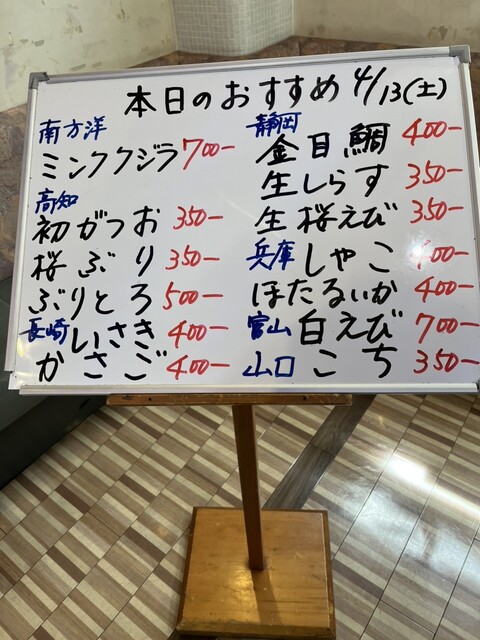 本日のおすすめ 4/13(土)
南方洋
ミンククジラ 700-
高知
初がつお 350-
桜ぶり 350-
ぶりとろ 500-
長崎 いさき 400-
かさご 400-
静岡
金目鯛 400-
生しらす 350-
生桜えび 350-
兵庫 しゃこ 400-
ほたるいか 400-
富山 白えび 700-
山口 こち 350-